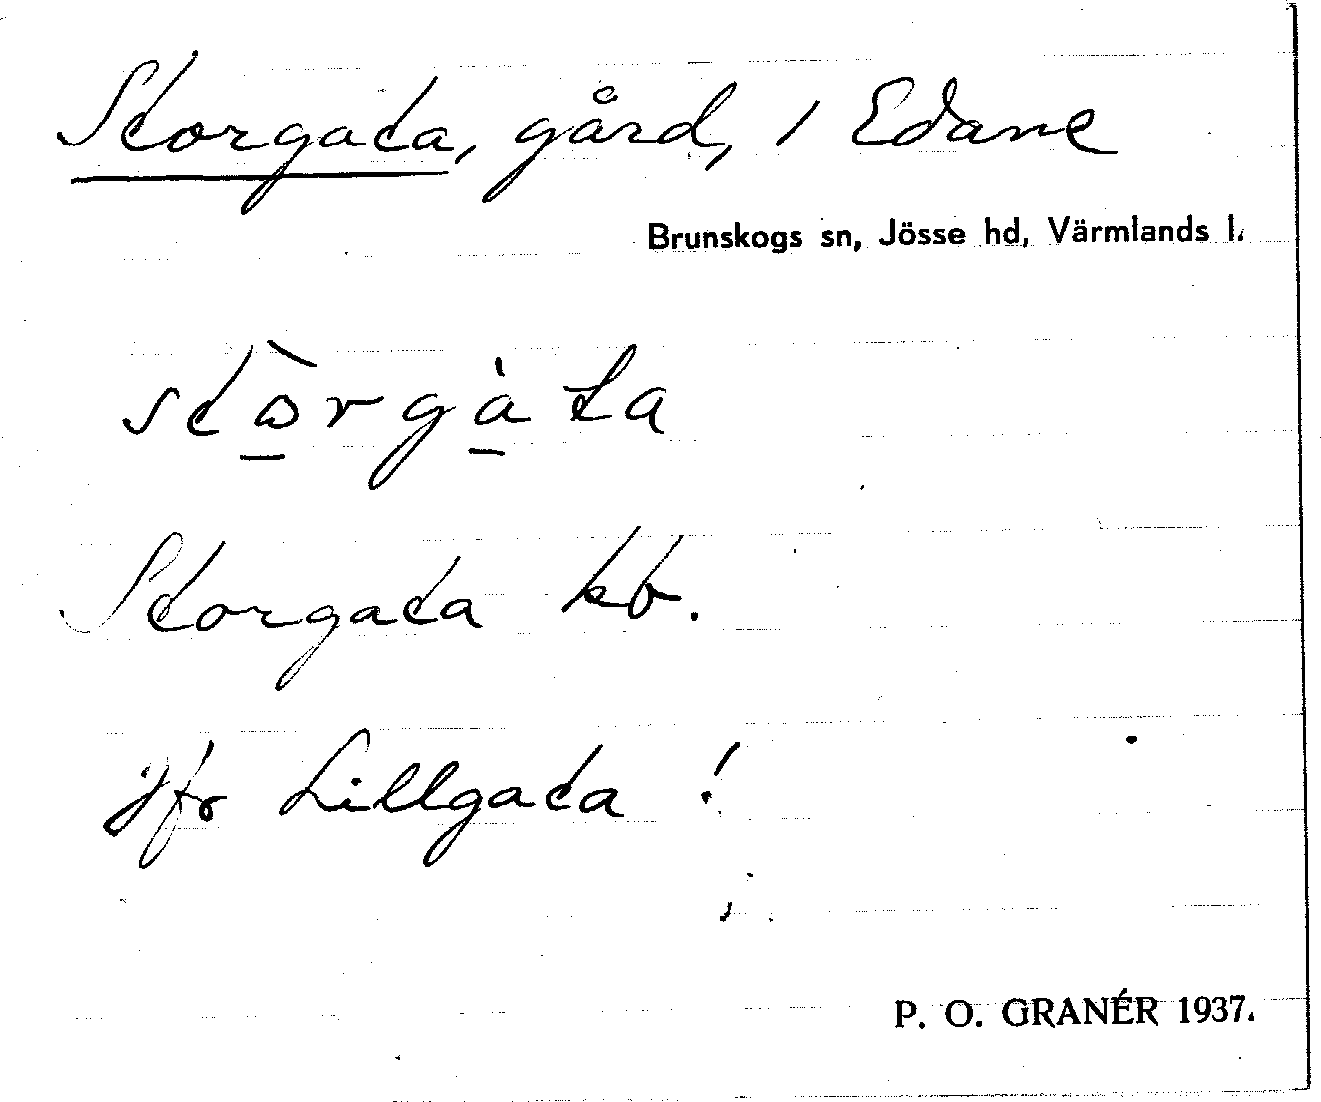 Storgata, gård, 1 Edane
Brunskogs sn, Jösse hd, Värmlands l.
stɷ̀rgàta
Storgata kb.
Jfr Lillgata !
P. O. GRANÉR 1937.